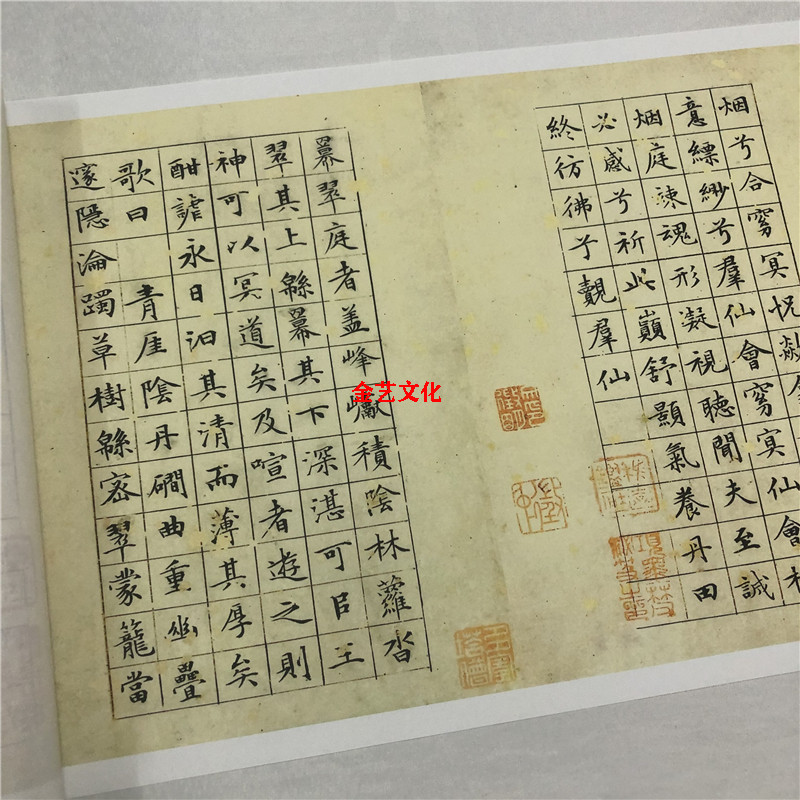 烟兮合窅冥怳
意縹緲兮羣仙會窅冥仙會
烟庭竦魂形凝視聽聞夫至誠
必感兮祈此巔舒顥氣養丹田
終彷彿兮覿羣仙
羃翠庭者盖峰巘積陰林蘿沓
翠其上緜羃其下深湛可㠯王
神可以冥道矣及喧者遊之則
酣謔永日汩其清而薄其厚矣
歌曰 青崖陰丹磵曲重幽疊
邃隱淪躅草樹緜密翠蒙籠當
金艺文化